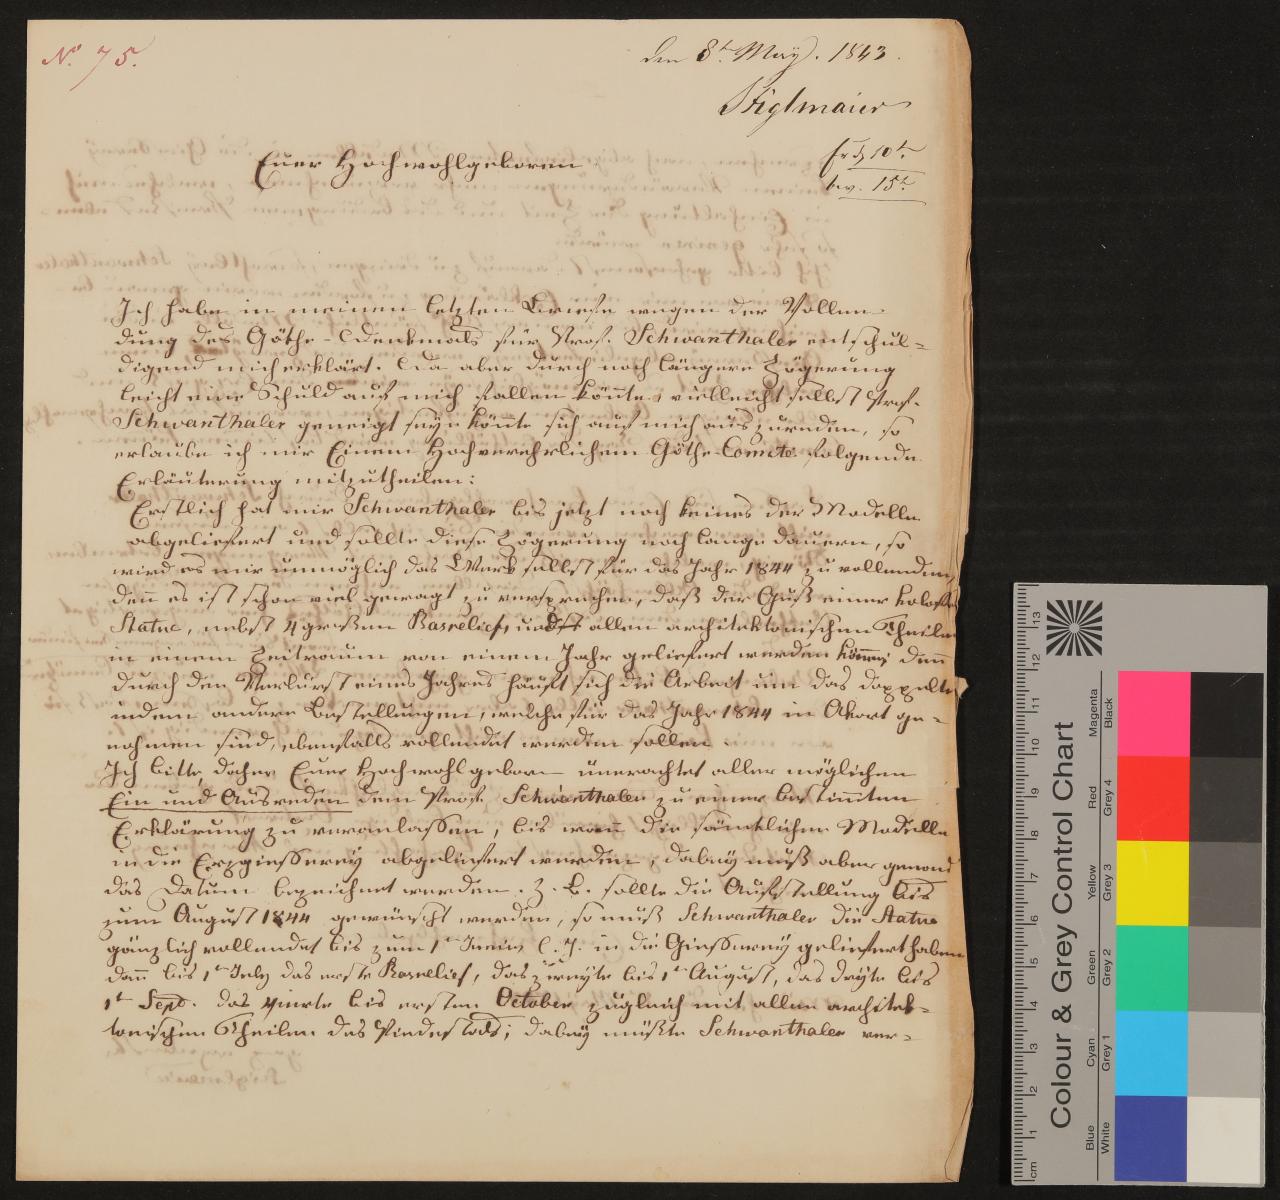 No. 75.
den 8t. May. 1843.
Stiglmaier
10t.
15t.
Euer Hochwohlgeboren
Ich habe in meinen letzten Briefe wegen der Vollen-
dung des Göthe-Denkmals für Prof. Schwanthaler entschul-
digend mich erklärt. Da aber durch noch längere Zögerung
leicht eine Schuld auf mich fallen könnte, vielleicht selbst Prof.
Schwanthaler geneigt seyn könnte sich auf mich auszureden, so
erlaube ich mir Einem Hochverehrlichem Göthe-Comité folgende
Erläuterung mitzutheilen:
Erstlich hat mir Schwanthaler bis jetzt noch keines der Modelle
abgeliefert und sollte diese Zögerung noch lange dauern, so
wird es mir unmöglich das Werk selbst für das Jahr 1844 zu vollenden,
denn es ist schon viel gewagt zu versprechen, daß der Guß einer
Statue, nebst 4 großen Basreliefs, und allen architektonischen Theilen
in einem Zeitraum von einem Jahr geliefert werden können, denn
durch den Verlurst eines Jahres häuft sich die Arbeit um das doppelte
indem andere Bestellungen, welche für das Jahr 1844 in Akort ge-
nohmen sind, ebenfalls vollendet werden sollen.
Ich bitte, daher Euer Hochwohlgeborn unerachtet aller möglichen
Ein und Ausreden dem Prof. Schwanthaler zu einer bestimten
Erklärung zu veranlassen, bis wann die sämtlichen Modelle
in die Erzgiesserey abgeliefert werden, dabey muß aber genau
das Datum bezeichnet werden. z. B. sollte die Aufstellung bis
zum August 1844 gewünscht werden, so muß Schwanthaler die Statue
gänzlich vollendet bis zum 1t. Juni l. J. in die Giesserey geliefert haben
dann bis 1t. July das erste Basrelief, das zweyte bis 1t. August, das dryte bis
1t. Sept. das vierte bis ersten October zugleich mit allen architek-
tonischen Theilen des Piedestals; dabey müßte Schwanthaler ver-